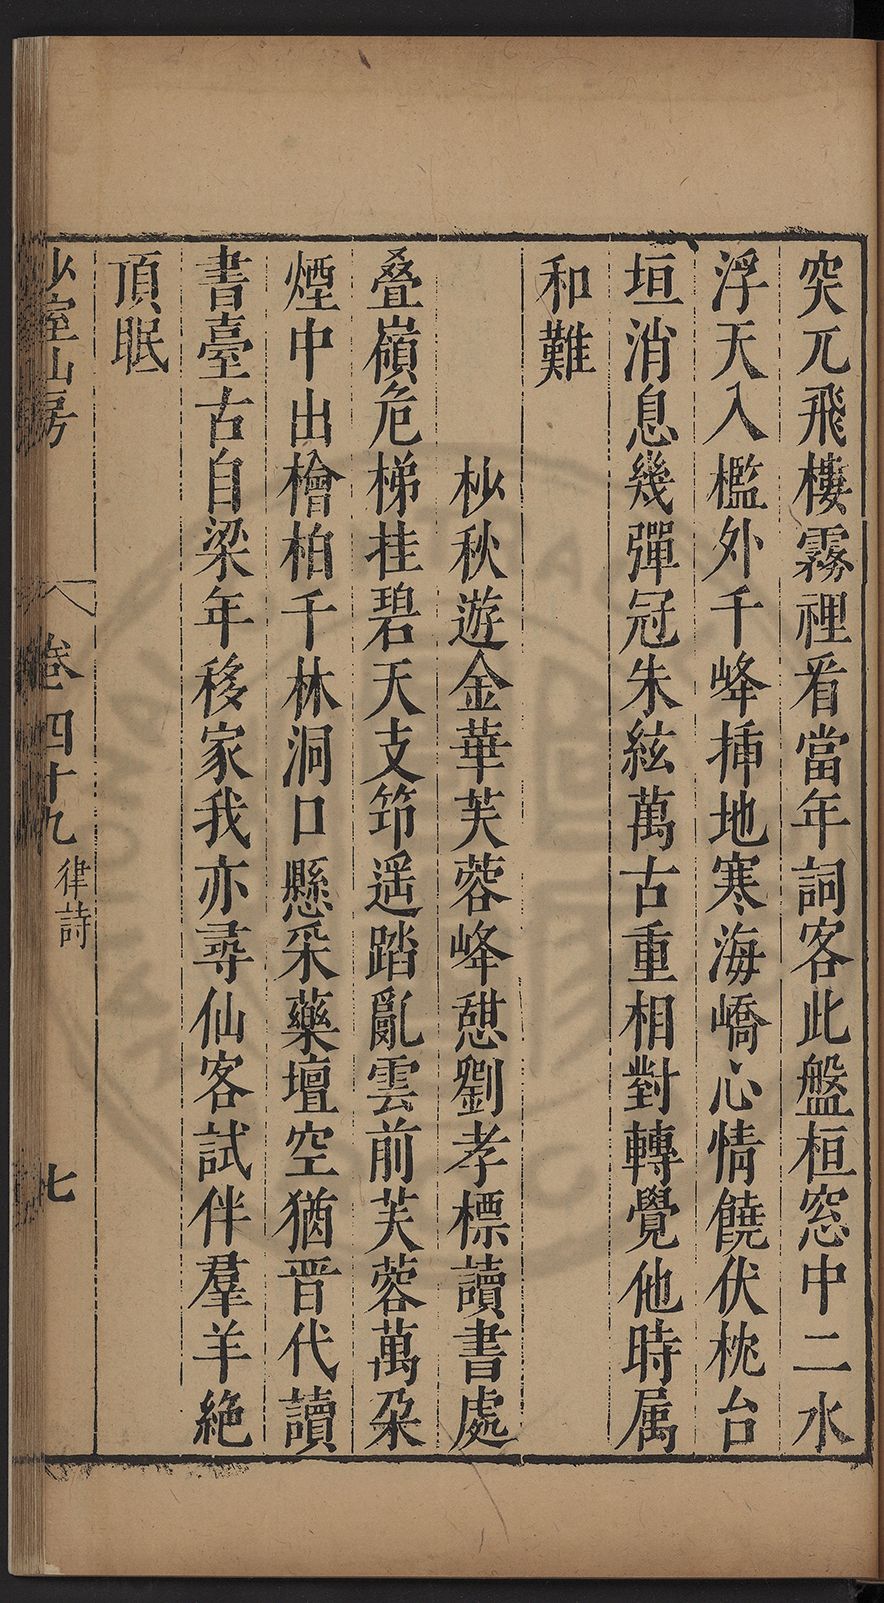 突兀飛樓霧裡看當年詞客此盤桓窓中二水
浮天入檻外千峰挿地寒海嶠心情饒伏枕台
垣消息幾彈冠朱絃萬古重相對轉覺他時属
和難
杪秋遊金華芙蓉峰憇劉孝標讀書處
叠嶺危梯挂碧天支筇遥踏亂雲前芙蓉萬朶
煙中出檜柏千林洞口懸采藥壇空猶晋代讀
書臺古自梁年移家我亦尋仙客試伴羣羊絶
頂眠
少室山房
卷四十九
律詩
七